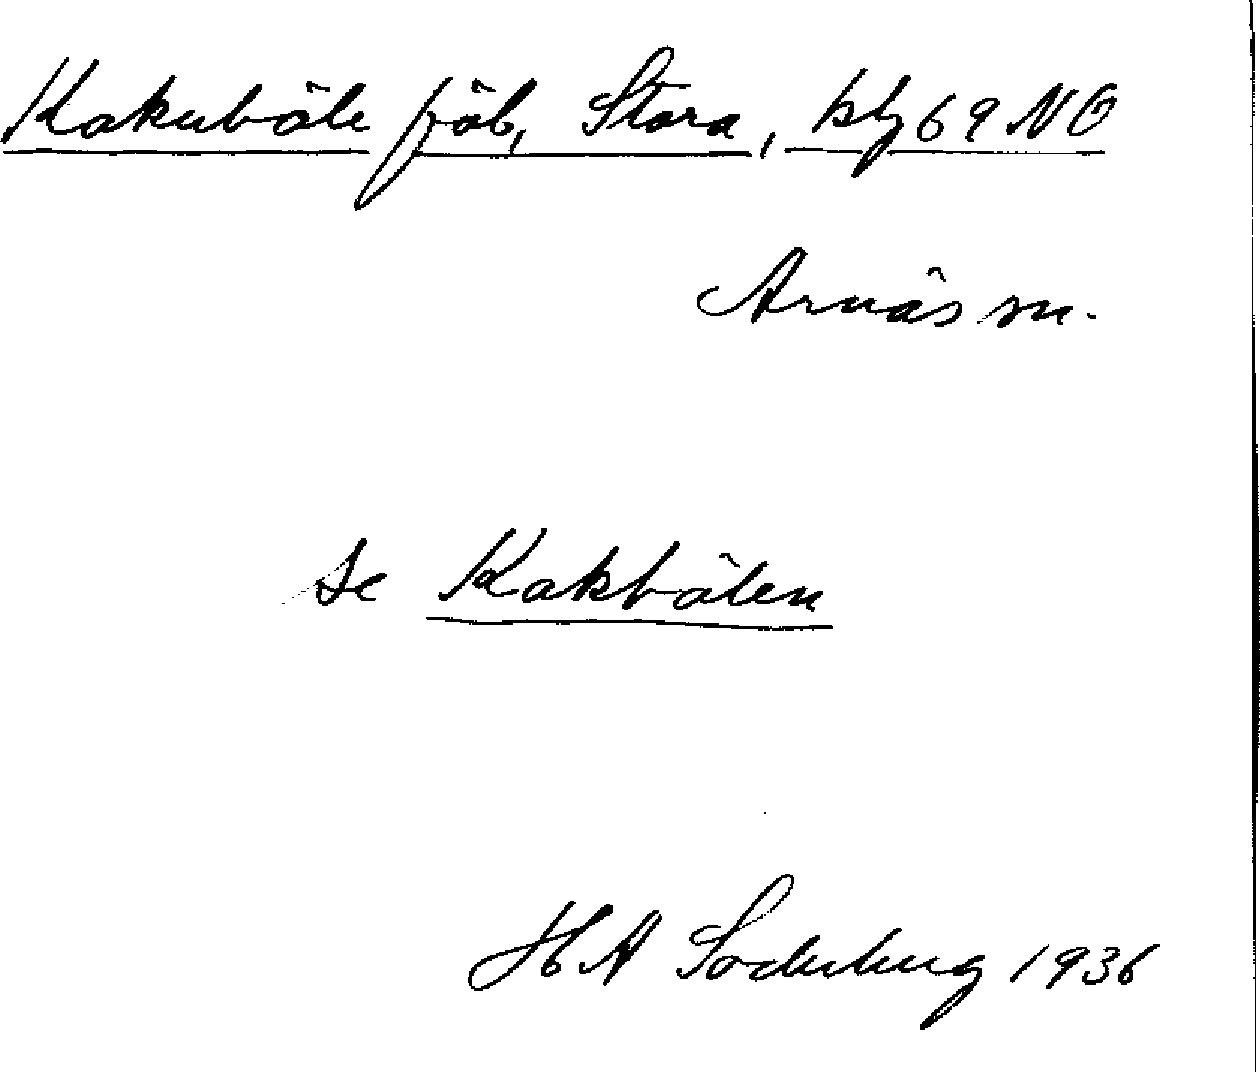 Kakuböle fjäb, Stora, kbg 69 NO
Arnäs sn.
se Kakbölen
H A Söderberg 1936